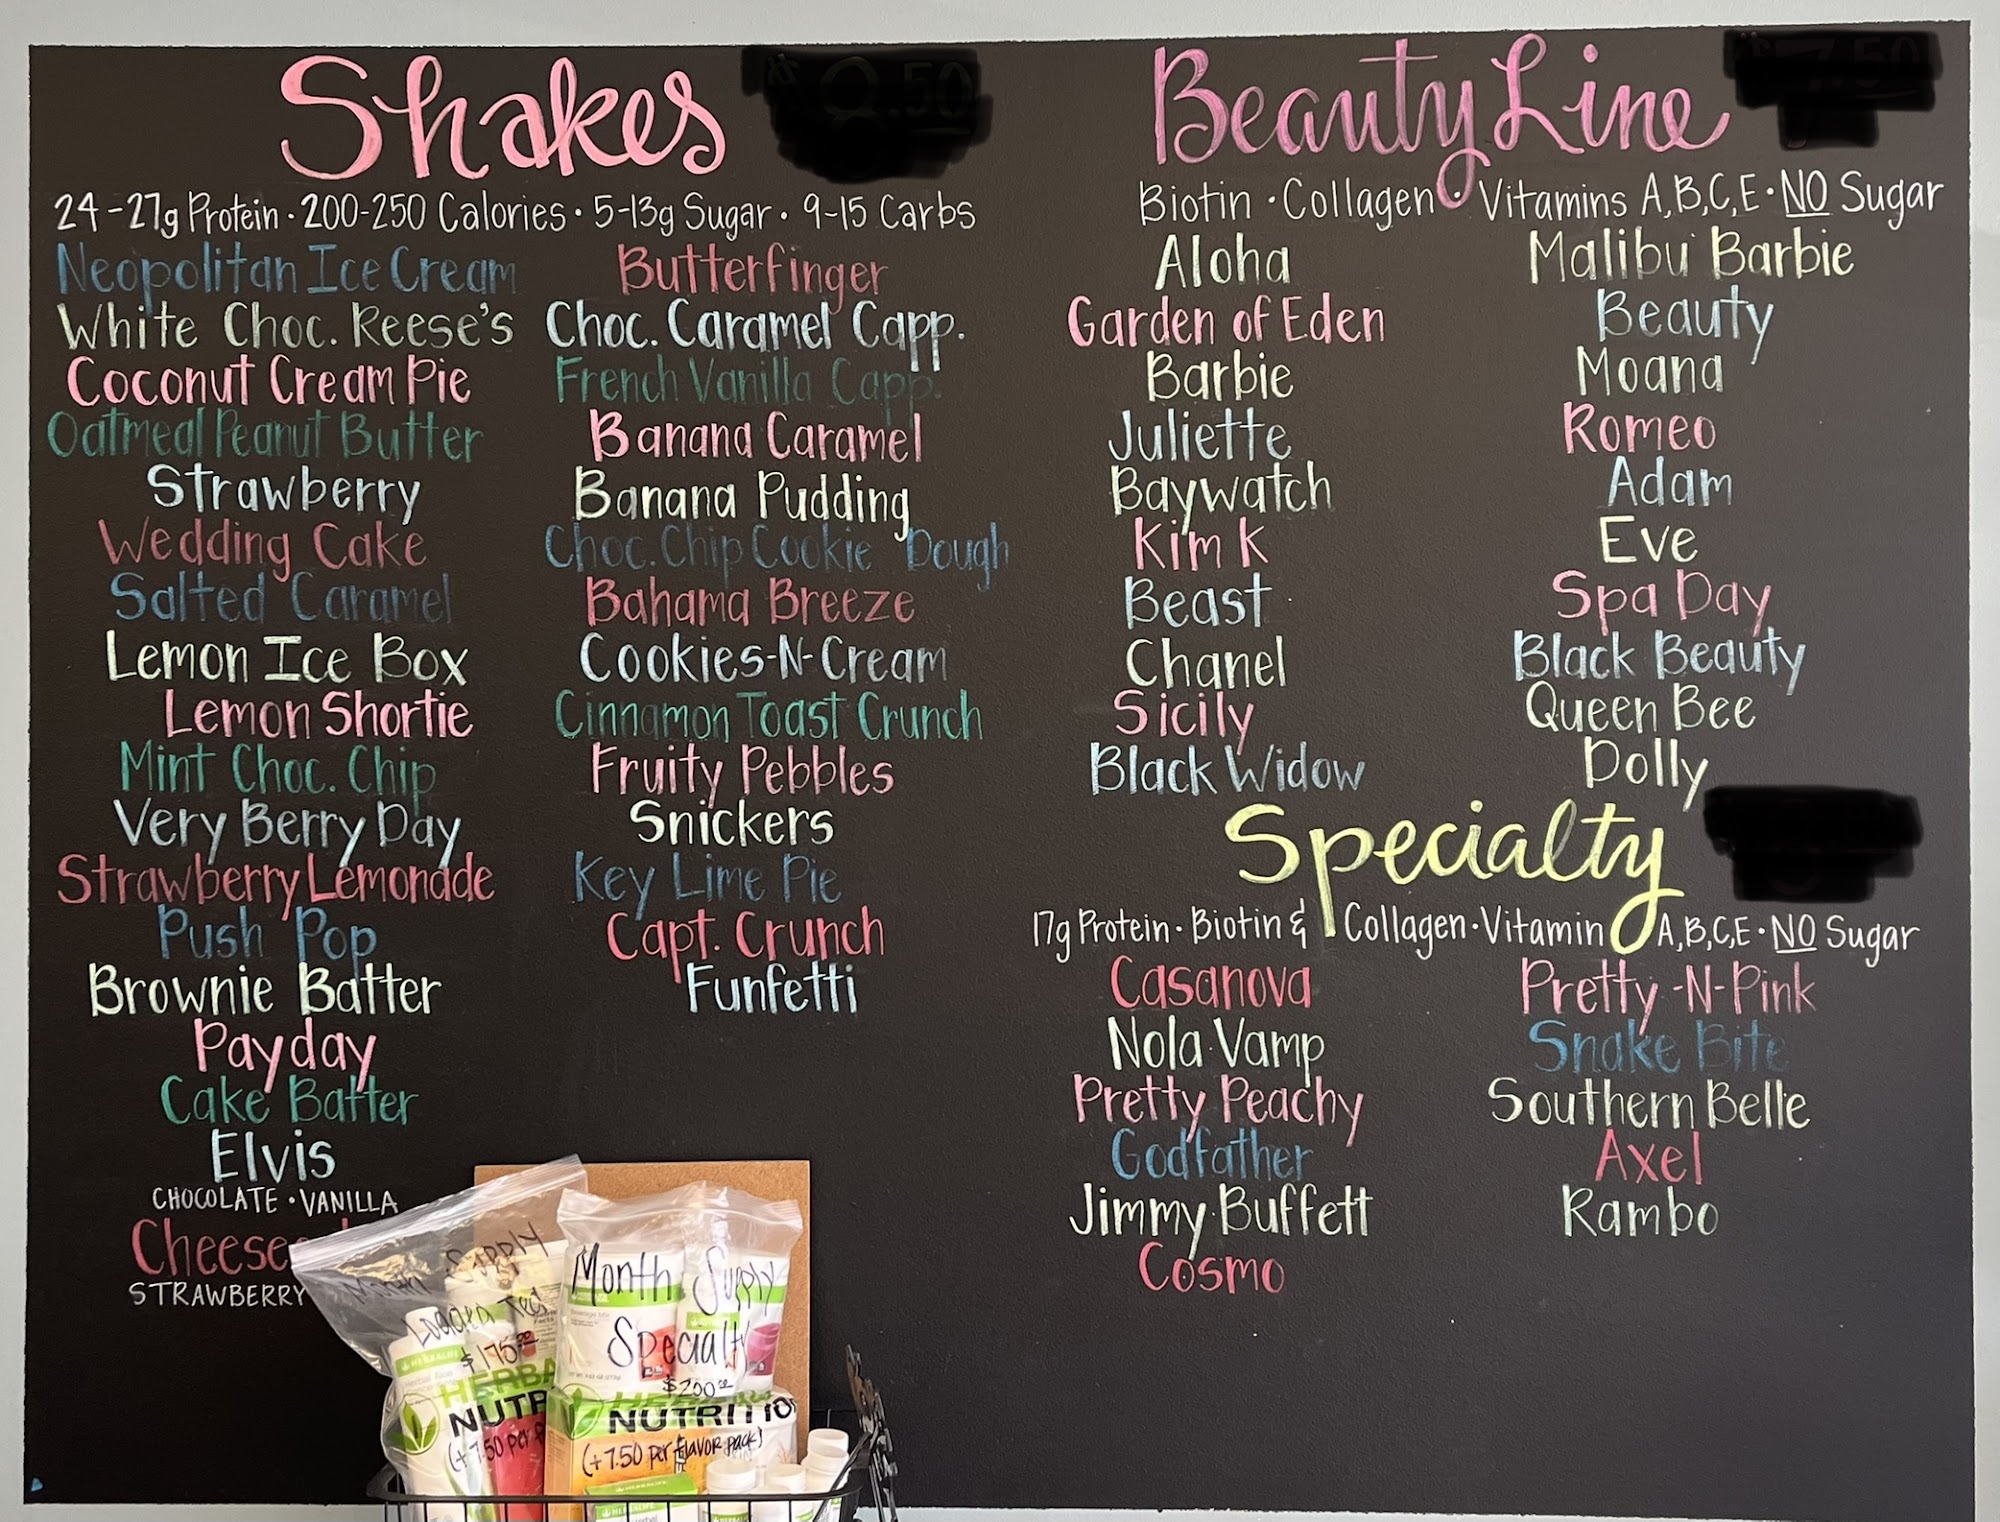 Shakes
24-27g Protein · 200-250 Calories · 5-13g Sugar · 9-15 Carbs
Neopolitan Ice Cream
White Choc. Reese's
Coconut Cream Pie
Oatmeal Peanut Butter
Strawberry
Wedding Cake
Salted Caramel
Lemon Ice Box
Lemon Shortie
Mint Choc. Chip
Very Berry Day
Strawberry Lemonade
Push Pop
Brownie Batter
Payday
Cake Batter
Elvis
CHOCOLATE · VANILLA
STRAWBERRY
Butterfinger
Choc. Caramel Capp.
French Vanilla Capp.
Banana Caramel
Banana Pudding
Choc. Chip Cookie Dough
Bahama Breeze
Cookies-N-Cream
Cinnamon Toast Crunch
Fruity Pebbles
Snickers
Key Lime Pie
Capt. Crunch
Funfetti
Beauty Line
Biotin · Collagen · Vitamins A,B,C,E · NO Sugar
Aloha
Garden of Eden
Barbie
Juliette
Baywatch
Kim K
Beast
Chanel
Sicily
Black Widow
Malibu Barbie
Beauty
Moana
Romeo
Adam
Eve
Spa Day
Black Beauty
Queen Bee
Dolly
Specialty
17g Protein · Biotin & Collagen · Vitamin A,B,C,E · NO Sugar
Casanova
Nola Vamp
Pretty Peachy
Godfather
Jimmy Buffett
Cosmo
Pretty-N-Pink
Snake Bite
Southern Belle
Axel
Rambo
Month Supply
Loaded Teas
$175.00
Month Supply
Specialty
$200.00
NUTRITIO
(+7.50 per flavor pack)